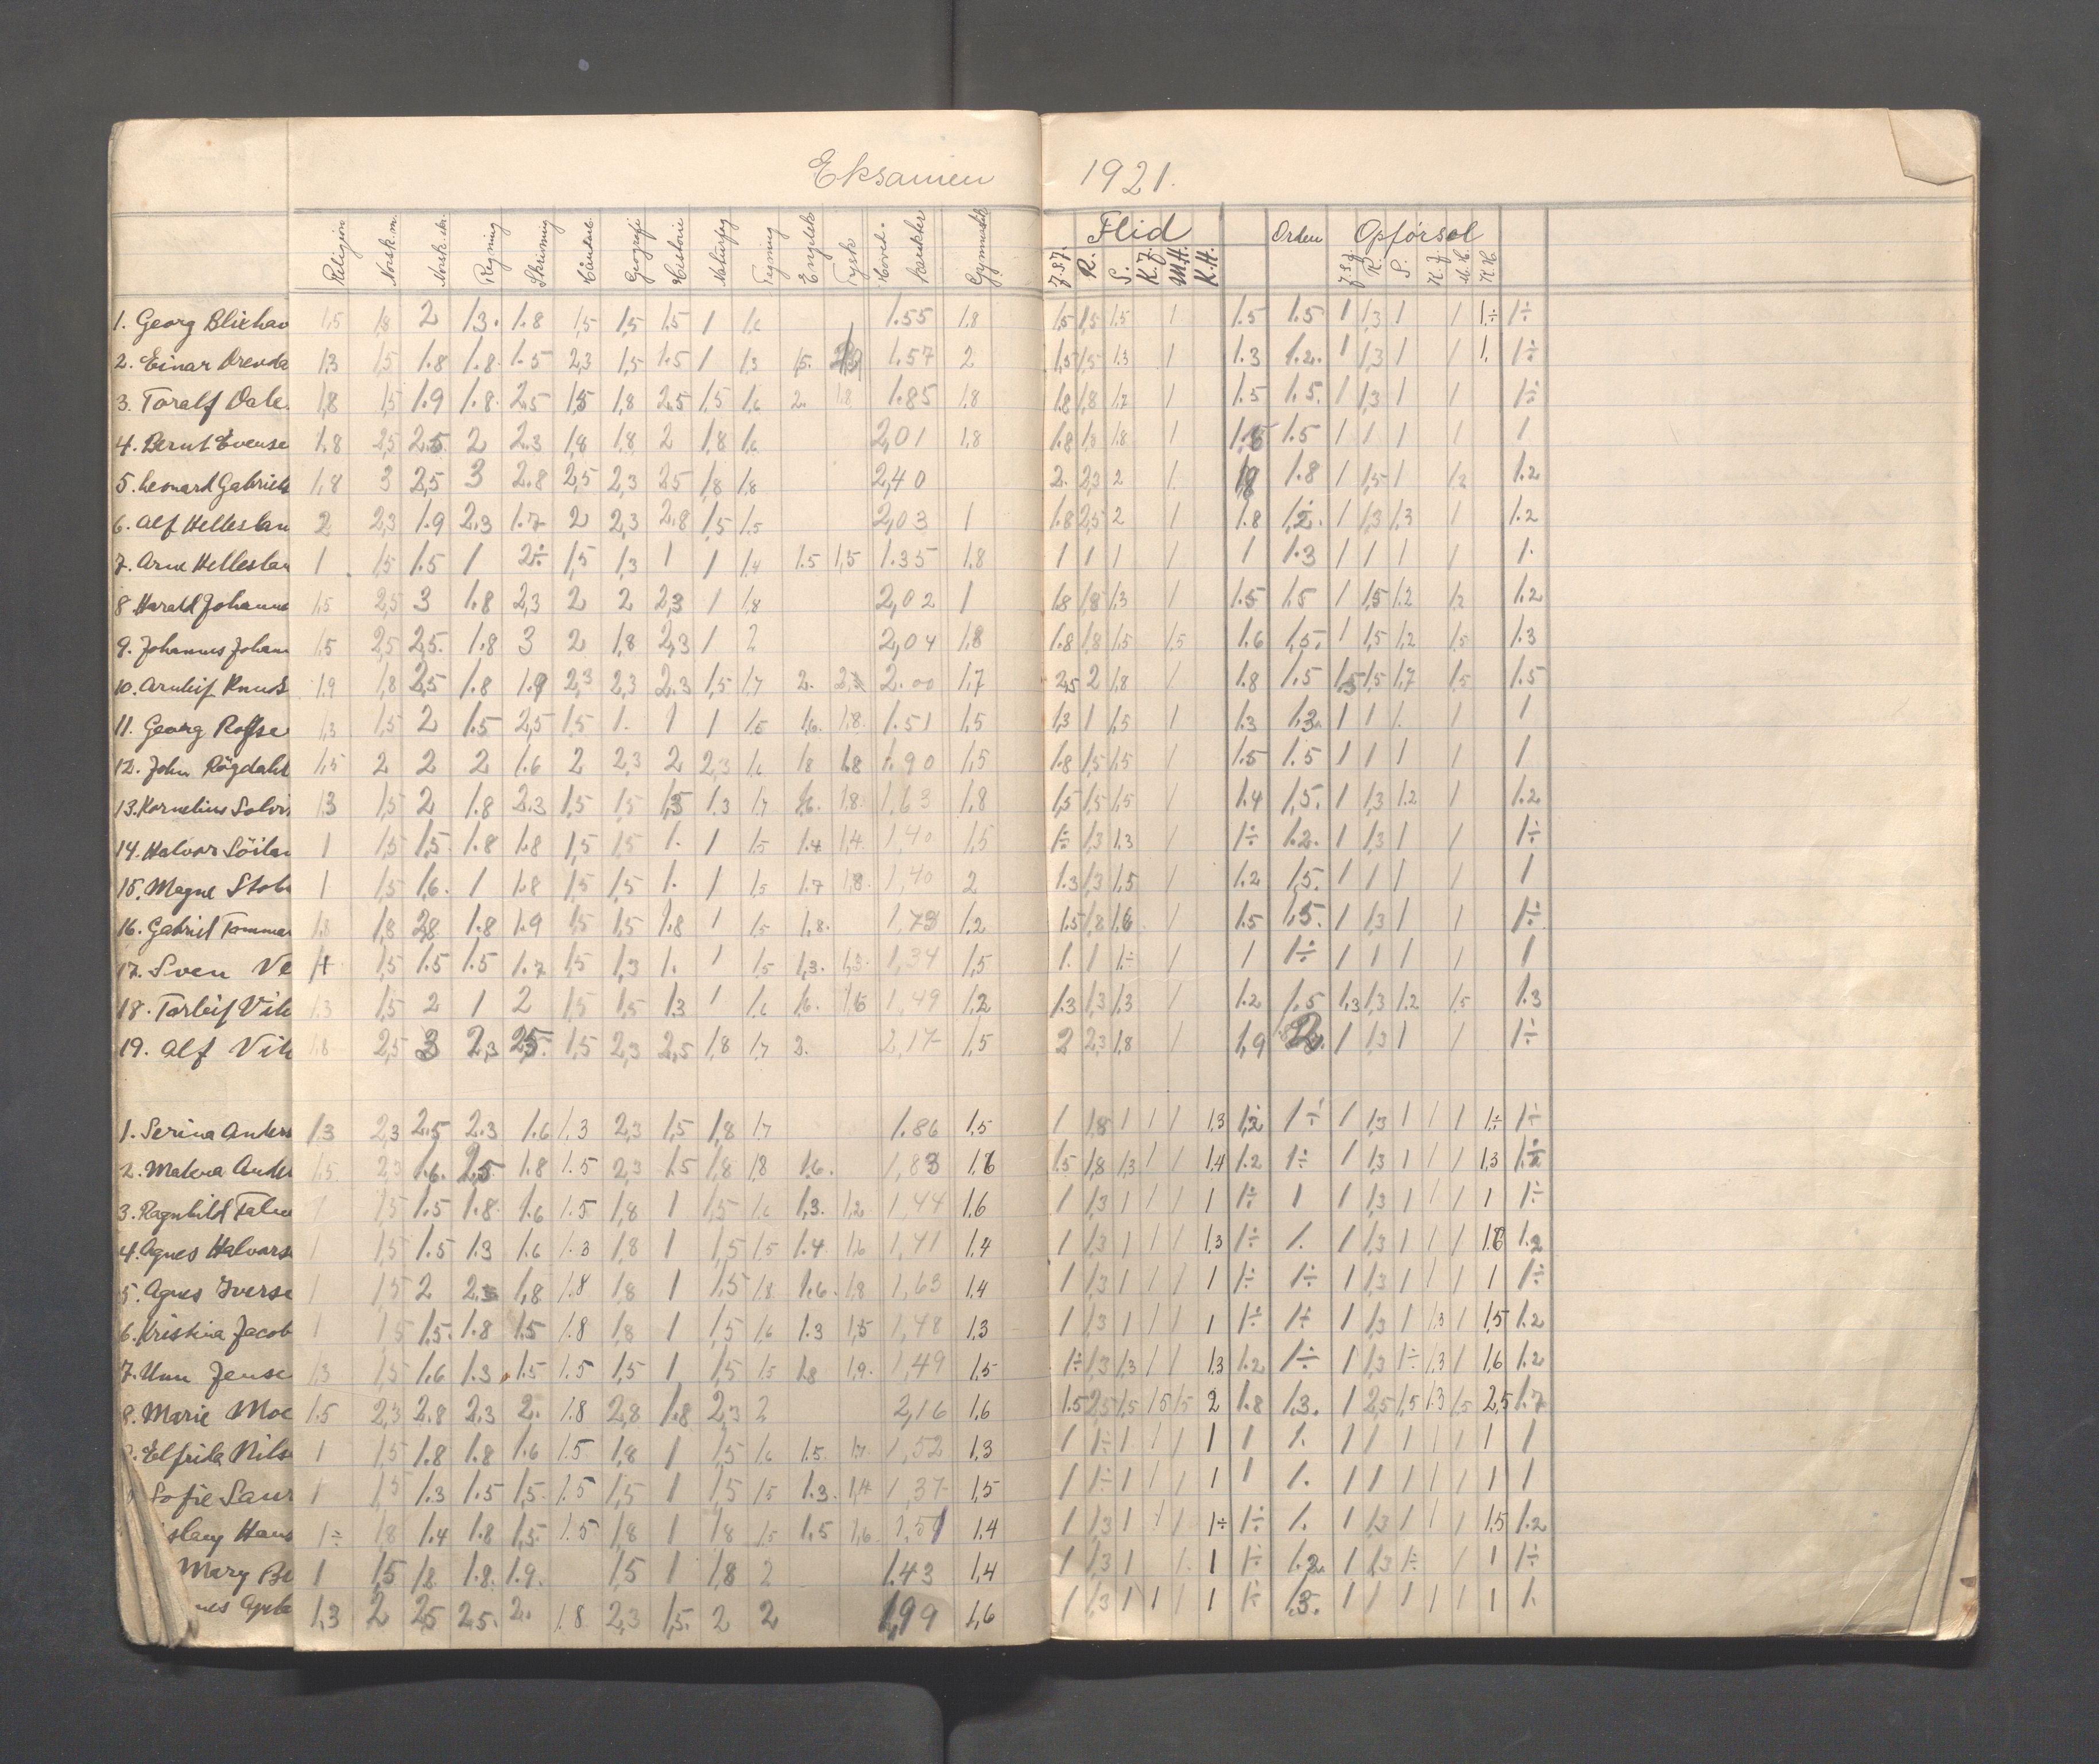 Eksamen 1921.
Religion Norsk m. Norsk skr. Regning Skrivning Håndarb. Geografi Historie Naturfag Tegning Engelsk Tysk Hoved-karakter Gymnastik Flid Orden Opførsel
R. S. K.J. M.H. K.H. R. S. K.J. M.H. K.H.
1. Georg Blixhav 1,5 1,8 2 1.3. 1.8 1,5 1,5 1.5 1 1,6 1.55 1.8 1,5 1,5 1,5 1 1.5 1.5 1 1,3 1 1 1÷ 1÷
2. Einar 1,3 1,5 1.8 1.8. 1.5 2,3 1,5 1.5 1 1,3 1,5. 1.57 2 1,5 1,5 1.3 1 1.3 1.2. 1 1,3 1 1 1. 1÷
3. Toralf Dale. 1,8 1,5 1.9 1.8. 2,5 1,5 1,8 2,5 1,5 1,6 2. 1.8 1.85 1.8 1.8 1,8 1,7 1 1.5 1.5. 1 1,3 1 1 1÷
4. Bernt Evense 1.8 2,5 2.5 2 2.3 1,8 1.8 2 1,8 1,6 2,01 1,8 1.8 1,3 1,8 1 1.5 1 1 1 1 1
5. Leonard Gabriels 1,8 3 2,5 3 2.8 2,5 2,3 2,5 1,8 1,8 2,40 2. 2,3 2 1. 1.8 1 1,5 1 1,2 1.2
6. Alf Helleslan 2 2,3 1.9 2.3 1.7 2 2,3 2,8 1,5 1,5 2,03 1 1.8 2,5 2 1 1.8 1,2. 1 1,3 1,3 1 1.2
7. Arne Helleslan 1 1,5 1.5 1 2÷ 1,5 1,3 1 1 1,4 1.5 1,5 1.35 1,8 1 1 1 1 1 1.3 1 1 1 1 1.
8 Harald Johanne 1,5 2,5 3 1.8 2,3 2 2 2,3 1 1,8 2,02 1 1,8 1,8 1,3 1 1.5 1.5 1 1,5 1.2 1,2 1.2
9. Johannes Johan 1,5 2,5 2,5. 1.8 3 2 1,8 2,3 1 2 2,04 1,8 1.8 1,8 1,5 1,5 1.6 1,5. 1 1,5 1,2 1,5 1.3
10. Arnleif Knuds 1,9 1,8 2,5 1.8 1.9 2,3 2,3 2.3 1,5 1,7 2. 2.00 1,7 2,5 2 1,8 1 1.8 1.5 1,5 1,7 1,5 1.5
11. Georg Rosse 1,3 1,5 2 1.5 2,5 1,5 1. 1 1 1,5 1,6. 1,8. 1.51 1,5 1,3 1 1,5 1 1.3 1.3. 1 1 1. 1 1
12. John Rögdahl 1,5 2 2 2 1.6 2 2,3 2 2,3 1,6 1,8 1.8 1.90 1,5 1.8 1,5 1,5 1 1.5 1.5 1 1 1 1 1
13. Kornelius Solvi 1,3 1,5 2 1.8 2.3 1,5 1,5 1,3 1.7 1,6. 1,8. 1,63 1,8 1,5 1,5 1,5 1 1.4 1,5. 1 1,3 1.2 1 1.2
14. Halvor Söilan 1 1,5 1,5. 1.8 1.8 1,5 1,5 1. 1 1,5 1.4 1,4. 1,40 1,5 1÷ 1,3 1,3 1 1÷ 1.2. 1 1,3 1 1 1÷
15. Magne Stok 1 1,5 1,6. 1 1.8 1,5 1,5 1. 1 1,5 1.7 1,8. 1,40 2 1.3 1,3 1,5 1 1.2 1,5. 1 1 1 1 1
16. Gabriel Tomme 1,8 1,8 2,8 1.8 1.9 1,5 1,5 1.8 1 1,5 1,8. 1,73 1,2 1.5 1,8 1,6 1 1.5 1,5. 1 1,3 1 1 1÷
17. Sven Ve 1,5 1.5 1.5 1.7 1,5 1,3 1. 1 1,5 1,3. 1,3. 1,34 1,5 1. 1 1÷ 1 1 1÷ 1 1 1 1 1
18. Torleif Vik 1.3 1,5 2 1 2 1,5 1,5 1,3 1 1,6 1,6. 1,49 1,2 1.3 1,3 1,3 1 1.2 1.5 1,3 1,3 1.2 1,5 1.3
19. Alf Vik 1,8 2,5 3 2,3 2,5. 1,5 2,3 2,5 1,8 1,7 2. 2,17 1,5 2 2,3 1,8 1 1,9 2. 1 1,3 1 1 1÷
1. Serina Anders 1.3 2,3 2.5 2.3 1.6 1.3 2,3 1,5 1,8 1,7 1.86 1,5 1 1,8 1 1 1 1,3 1,2 1÷ 1 1,3 1 1 1 1÷ 1÷
2. Malena Ander 1,5. 2,3 1.6. 2,5 1.8 1.5 2,3 1.5 1,8 1,8 1,6. 1,83 1.5 1,8 1,3 1 1 1,4 1.2 1÷ 1 1,3 1 1 1 1,3
3. Ragnhild Falne 1 1,5 1.5 1.8. 1.6 1.5 1,8 1 1,5 1,6 1,3. 1,2. 1,44 1.6 1 1,3 1 1 1 1 1÷ 1 1 1,3 1 1 1 1 1÷
4. Agnes Halvors 1 1,5 1.5 1.3 1.6 1.3 1,8 1 1,5 1,5 1.4. 1,6 1,41 1,4 1 1,3 1 1 1 1,3 1÷ 1. 1 1,3 1 1 1 1.2
5. Agnes Iverse 1 1,5 2 1,8 1.8 1,8 1 1.5 1,8 1,6. 1,8 1,63 1,4 1 1,3 1 1 1 1 1÷ 1÷ 1 1,3 1 1 1 1 1÷
6. Kristina Jacob 1 1,5 1,5. 1.8 1,5 1.8 1,8 1 1,5 1,6 1.3 1,5 1,48 1,3 1 1,3 1 1 1 1 1÷ 1÷ 1 1,3 1 1,3 1 1,5 1.2
7. Unn Jense 1,3 1,5 1.6 1.3 1.5 1.5 1,5 1 1,5 1,5 1,8 1,9. 1,49 1,5 1÷ 1,3 1,3 1 1 1,3 1.2 1÷ 1 1,3 1÷ 1,3 1 1,6 1.2
8. Marie Moe 1.5 2,3 2.8 2.3 2. 1.8 2,8 1.8 2,3 2 2,16 1,6 1.5 2,5 1,5 1,5 1,5 2 1.8 1.3. 1 2,5 1,5 1.3 1,5 2,5 1.7
Elfrida Nils 1 1,5 1.8 1.8 1.6 1.5 1,8 1 1,5 1,6 1.5. 1,7. 1,52 1,3 1 1÷ 1 1 1 1 1 1. 1 1 1 1 1 1 1
Sofie Saur 1 1,5 1.3 1.5 1,5. 1.5 1,5 1 1,5 1,5 1.3. 1,4 1,37 1,5 1 1÷ 1 1 1 1 1 1. 1 1 1 1 1 1 1
slaug Hans 1÷ 1,8 1.4 1.8 1,5 1.5 1,8 1 1,8 1,5 1,5 1,6. 1,51 1.4 1 1,3 1 1 1 1÷ 1÷ 1. 1 1,3 1 1 1 1,5 1.2
Mary Be 1 1,5 1,8 1.8. 1.9. 1,5 1 1,8 2 1.43 1,4 1 1,3 1 1. 1 1÷ 1.2. 1 1,3 1÷ 1 1 1÷
nes 1,3 2 2,5 2,5. 2. 1.8 2,3 1,5. 2 2 1,99 1,6 1 1,3 1 1 1 1 1÷ 1.3. 1 1 1 1 1 1 1.